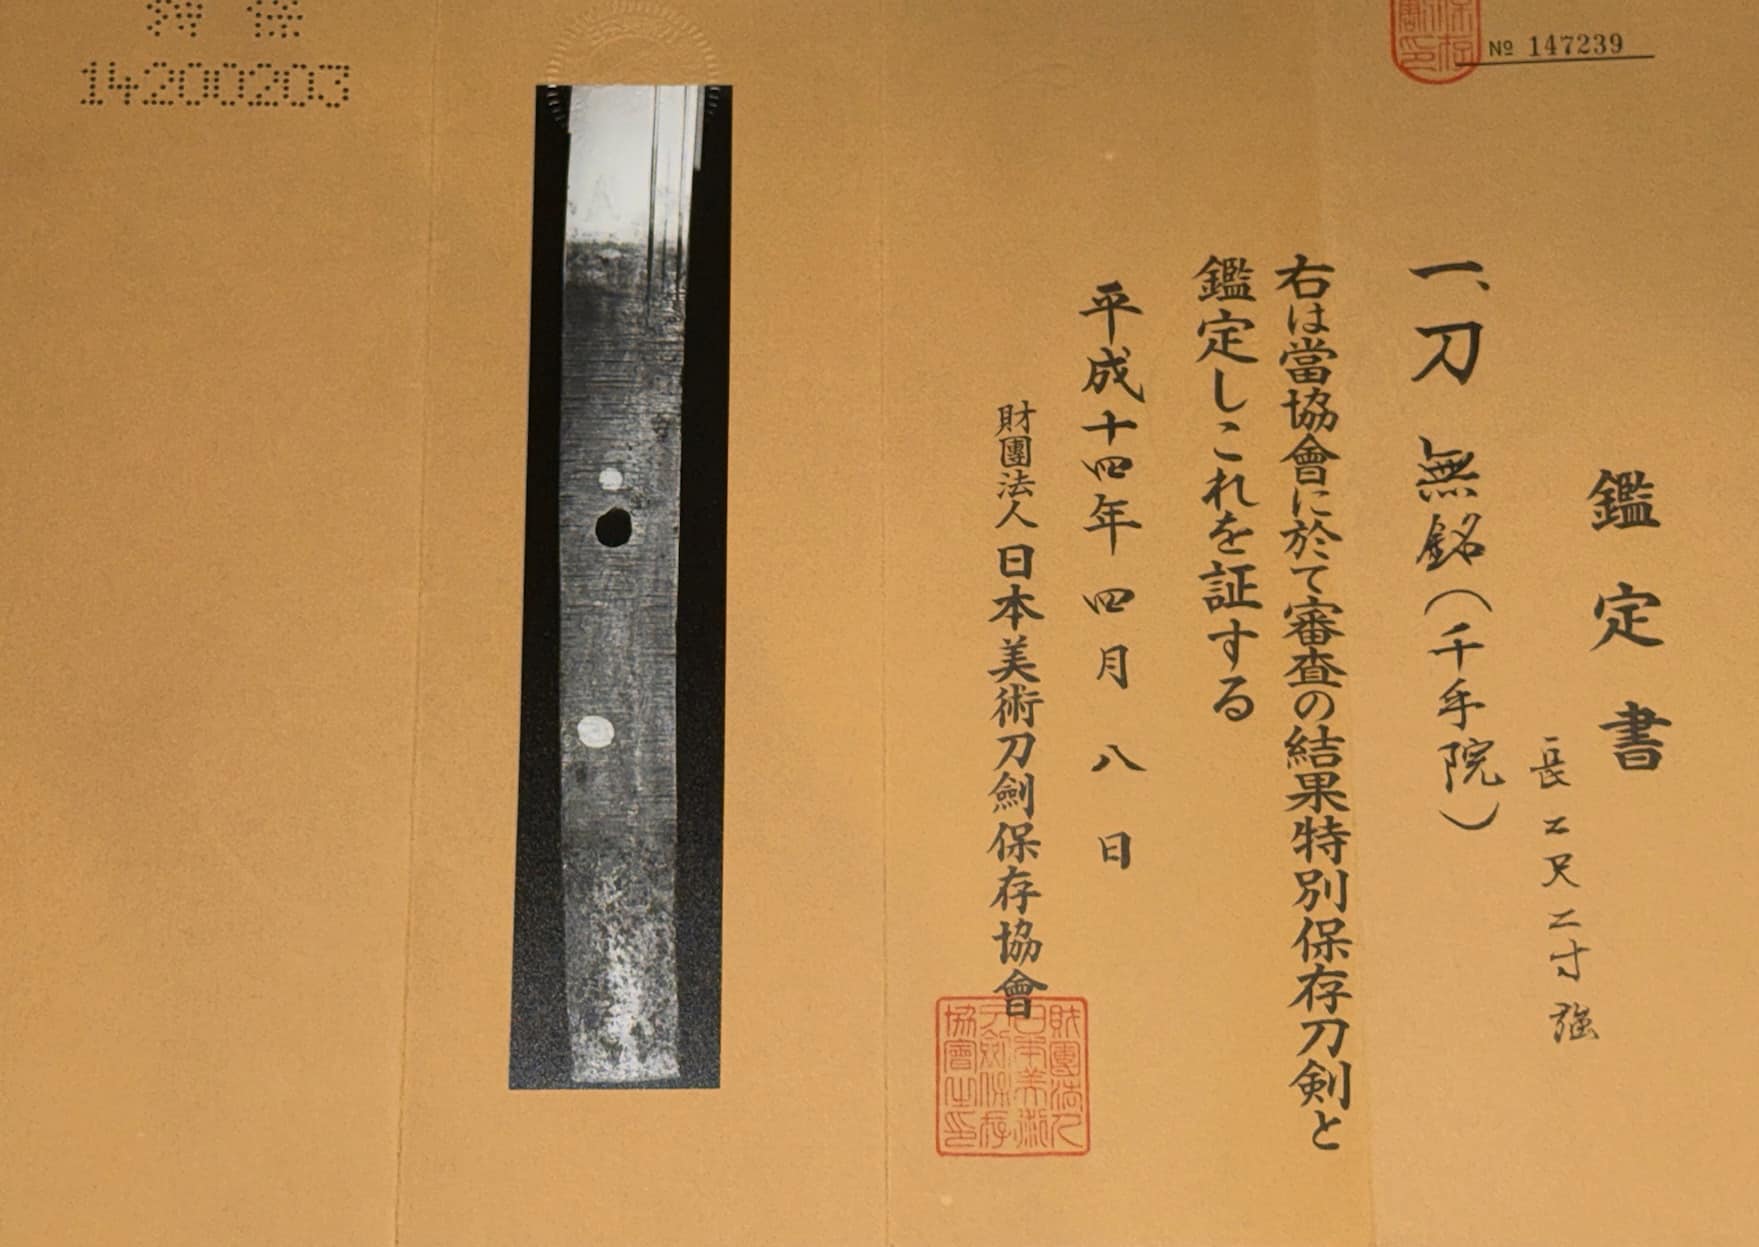 № 147239
鑑定書
長二尺二寸強
一、刀 無銘(千手院)
右は當協會に於て審査の結果特別保存刀剣と
鑑定しこれを証する
平成十四年四月八日
財團法人日本美術刀劍保存協會
財團法人日本美術刀劍保存協會之印
特保
14200203